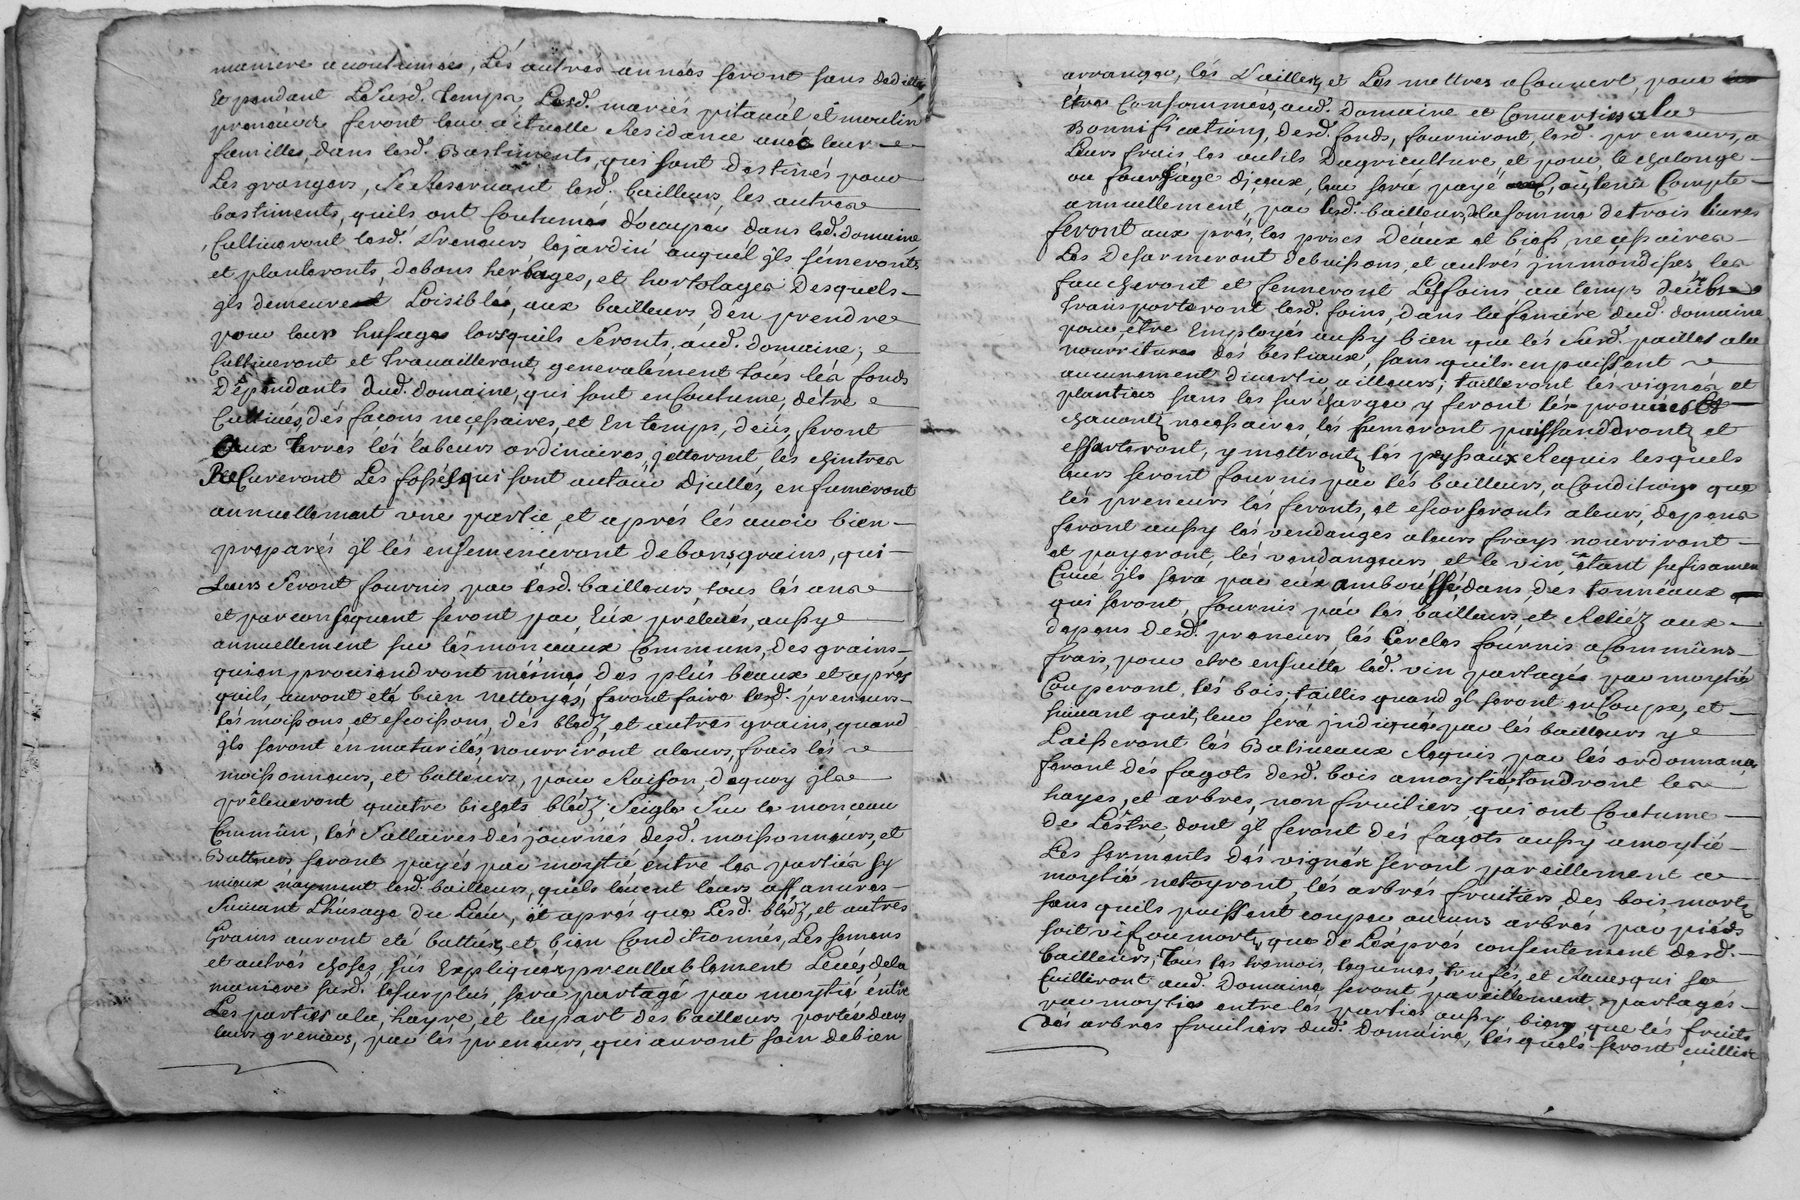 maniere acoutumées, Lés autres années seront sans
Et pendant Lesusd. temps, Lesd. mariés pitaval et moulin
preneurs feront leur actuelle Residance avec leur
familles, dans lesd. Bastiments, qui sont Destinés pour
Les grangers, Se Reservant lesd. bailleurs, les autres
bastiments, quils ont Coutumés d'ocuper dans led. domaine
Cultiveront lesd. Preneurs, le jardin auquel jls sémeronts
et planteronts, de bons herbages, et hortolages Desquels
jls demeure Loisible, aux bailleurs, d'en prendre
pour leur husages lorsquils Seronts, aud. domaine,
Cultiveront et travailleront, generalement tous lés fonds
Dépendants dud. domaine, qui sont en Coutume, dètre
Cultivés, dés façons necessaires, et En temps, deüs, feront
aux terres lés labeurs ordinaires, jetteront, les chintres
Recureront Les fossés qui sont autour Djcelles, enfumeront
annuellement une partie, et aprés lés avoir bien
preparés jl lés ensemenceront de bons grains, qui
Leurs Seront fournis par lesd. bailleurs, tous lés ans
et par consequent seront par, Eux prélevés, aussy
annuellement sur lés monceaux Communs, des grains
qui en proviendront mésmes des plus béaux et aprés
quils, auront eté bien nettoyés, feront faire lesd. preneurs
lés moissons et escossons, dés bledz, et autres grains, quand
jls seront én maturités, nourriront a leurs, frais lés
moissonneurs, et batteurs, pour Raison, dequoy jls
préleveront quatre bichets blédz, Seigle Sur le monceau
Commun, lés Sallaires dés journés desd. moissonneurs, et
Batteurs seront payés par moytié, entre les parties sy
mieux n'ayment lesd. bailleurs, quils lévent leurs affanures
Suivant L'husage du Lieu, et aprés que Lesd. blédz, et autres
Grains auront eté battus, et bien Conditionnés, Les semens
et autrés choses, sus Expliquées preallablement Levés, de la
maniere susd. le surplus, sera partagé par moytié entre
Les parties a la, hayre, et la part des bailleurs portée dans
leurs greniers, par lés preneurs, qui auront soin de bien
arranger, lés Pailles, et Les mettres a Couvert, pour
étre Consommées, aud. Domaine et Converties, a la
Bonnification, desd. fonds, fourniront, lesd. preneurs, a
Leurs frais, les outils D'agriculture et pour le chalonge
ou fourrage djceux, leur sera payé Compte
annuellement, par lesd. bailleurs, la somme de trois livres
feront aux prés, les prises D'éaux et biefs, necessaires
Les Desarmeront de buissons, et autrés jmmondisses, les
faucheront et fenneront Les foins au temps
transporteront lesd. foins, dans la féniere dud. domaine
pour étre Employés aussy bien que lés Susd. pailles a la
nourritures des bestiaux, sans quils en puissent
aucunement divertir ailleurs; tailleront lés vignes et
plantiers sans les surcharger y feront lés
necessaires, les et
, y mettront, lés Requis lesquels
leurs seront fournis par lés bailleurs, a Conditions que
lés preneurs lés feronts, et a leurs, depens
feront aussy lés vendanges a leurs frays nourriront
et payeront, les vendangeurs, et le vin, étant
Cuvé jls sera par eux dans, des tonnéaux
qui seront, fournis par les bailleurs, et Reliéz aux
depens desd. preneurs, lés Cercles fournis a Communs
frais, pour etre ensuitte led. vin partagés par moytié
Couperont, lés bois, taillis quand jl seront en Coupe, et
suivant quil leur sera jndiqué par lés bailleurs y
Laisseront lés Balineaux Requis par lés ordonnances
feront dés fagots desd. bois a moytié, tondront les
hayes, et arbres, non fruitiers, qui ont Coutume
de L'étre, dont jl feront dés fagots aussy a moytié
Les sarments dés vignés seront pareillement a
moytié netoyront, lés arbres fruitiers des bois, morts
sans quils puissent couper aucuns arbrés par pieds
soit vif ou mort, que de L'exprés consentement desd.
bailleurs, Tous les tremois, legumes, trufes, et Raves, qui se
Cuilliront aud. Domaine seront pareillement partagés
par moyties entre lés parties aussy bien, que lés fruits
dés arbres fruitiers dud. Domaine, lésquels seront cuillis